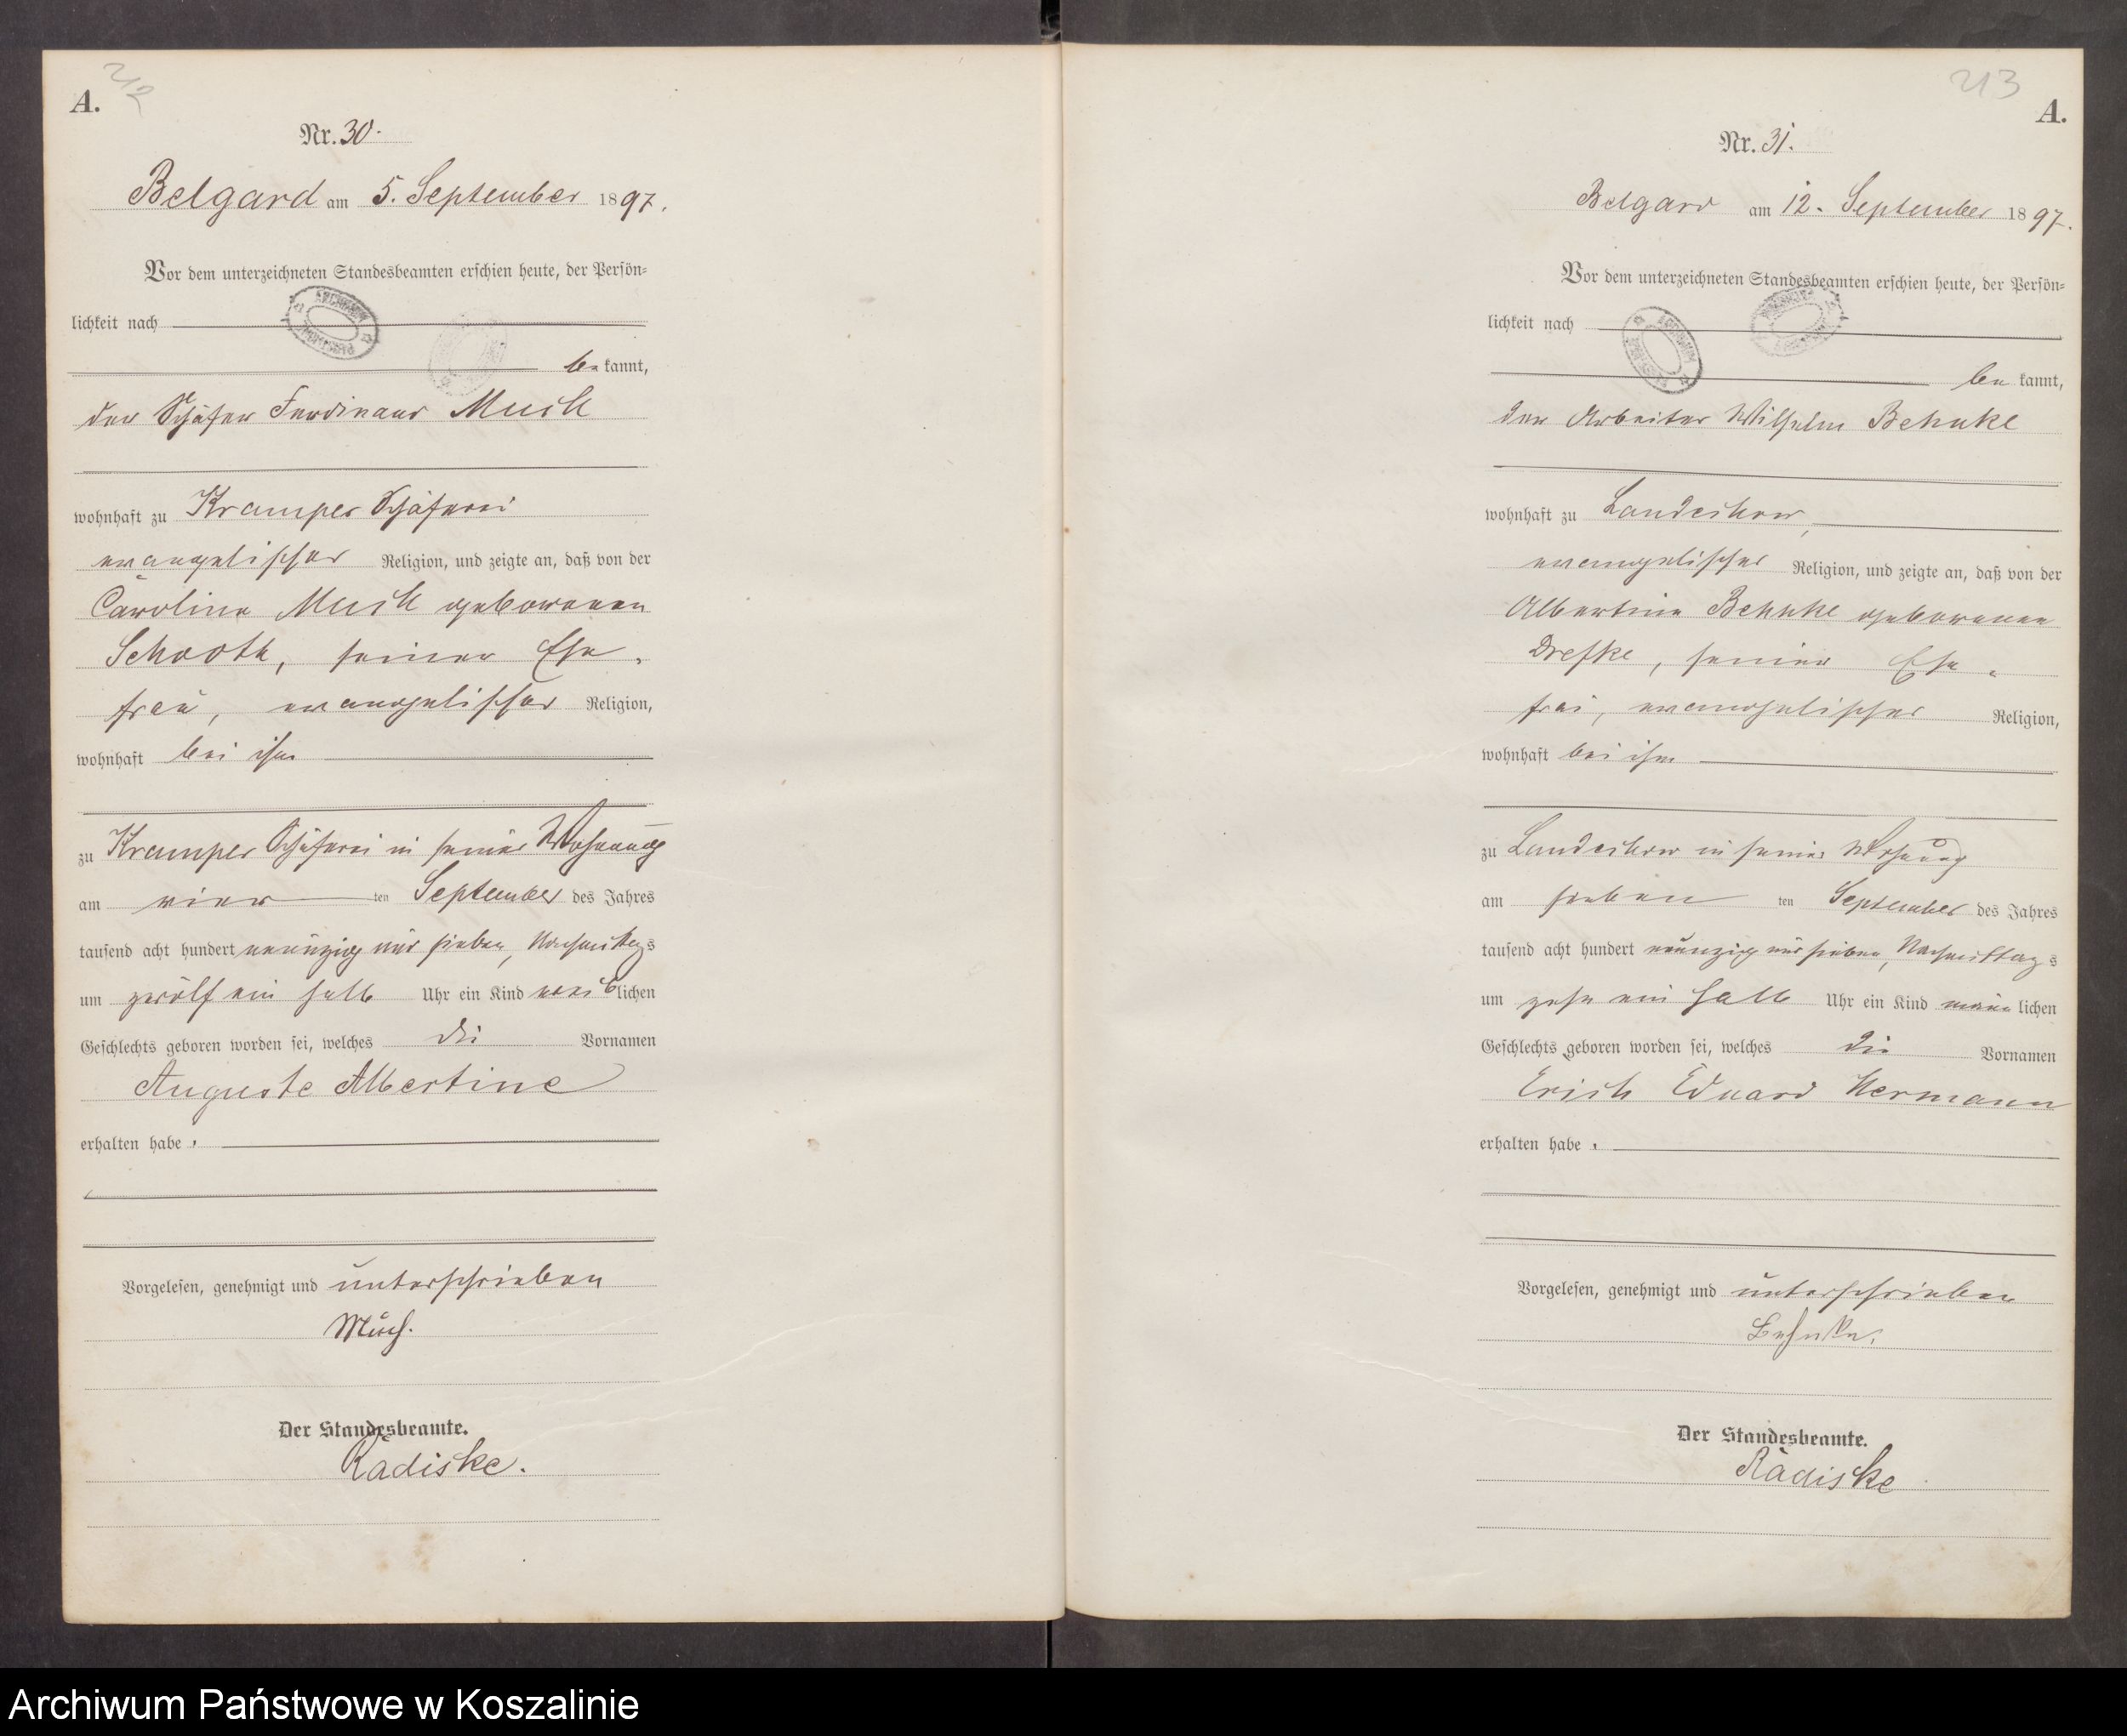 212
A.
Nr. 30.
Belgard am 5. September 1897.
Vor dem unterzeichneten Standesbeamten erschien heute, der Persön-
lichkeit nach
bekannt,
der Schäfer Ferdinand Much
wohnhaft zu Kramper Schäferei
evangelischer Religion, und zeigte an, daß von der
Caroline Much geborenen
Schooth, seiner Ehe-
frau, evangelischer Religion,
wohnhaft bei ihm
zu Kramper Schäferei in seiner Wohnung
am vier ten September des Jahres
tausend acht hundert neunzig und sieben, Nachmittags
um zwölf ein halb Uhr ein Kind weiblichen
Geschlechts geboren worden sei, welches die Vornamen
Auguste Albertine
erhalten habe.
Vorgelesen, genehmigt und unterschrieben
Much.
Der Standesbeamte.
Radiske.
213
A.
Nr. 31.
Belgard am 12. September 1897.
Vor dem unterzeichneten Standesbeamten erschien heute, der Persön-
lichkeit nach
bekannt,
der Arbeiter Wilhelm Behnke
wohnhaft zu Landechow,
evangelischer Religion, und zeigte an, daß von der
Albertine Behnke geborenen
Drefke, seiner Ehe-
frau, evangelischer Religion,
wohnhaft bei ihm
zu Landechow in seiner Wohnung
am sieben ten September des Jahres
tausend acht hundert neunzig und sieben, Nachmittags
um zehn ein halb Uhr ein Kind männlichen
Geschlechts geboren worden sei, welches die Vornamen
Erich Eduard Hermann
erhalten habe.
Vorgelesen, genehmigt und unterschrieben
Behnke.
Der Standesbeamte.
Radiske
Archiwum Państwowe w Koszalinie